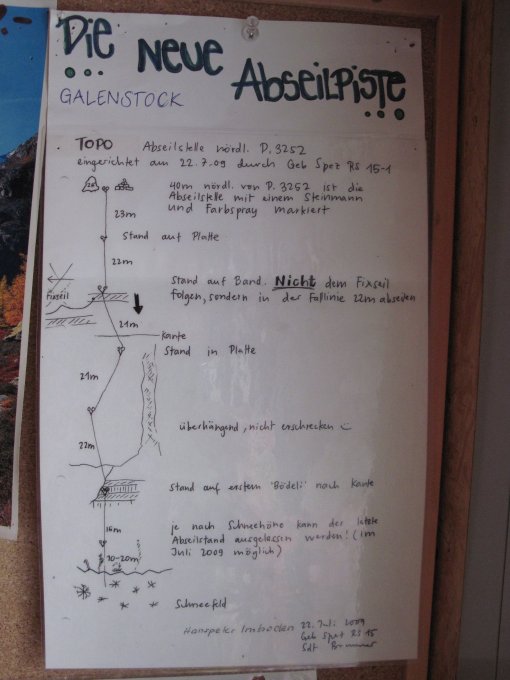 Die neue
Abseilpiste
GALENSTOCK
TOPO Abseilstelle nördl. P. 3252
eingerichtet am 22.7.09 durch Geb Spez RS 15-1
40m nördl. von P. 3252 ist die
Abseilstelle mit einem Steinmann
und Farbspray markiert
23m
Stand auf Platte
22m
Stand auf Band. Nicht dem Fixseil
folgen, sondern in der Fallinie 22m abseilen
Fixseil
21m
Kante
Stand in Platte
21m
überhängend, nicht erschrecken
22m
Stand auf erstem "Bödeli" nach Kante
16m
je nach Schneehöhe kann der letzte
Abseilstand ausgelassen werden! (im
Juli 2009 möglich)
10-20m
Schneefeld
Hanspeter Imboden
22. Juli 2009
Geb Spez RS 15
Sdt